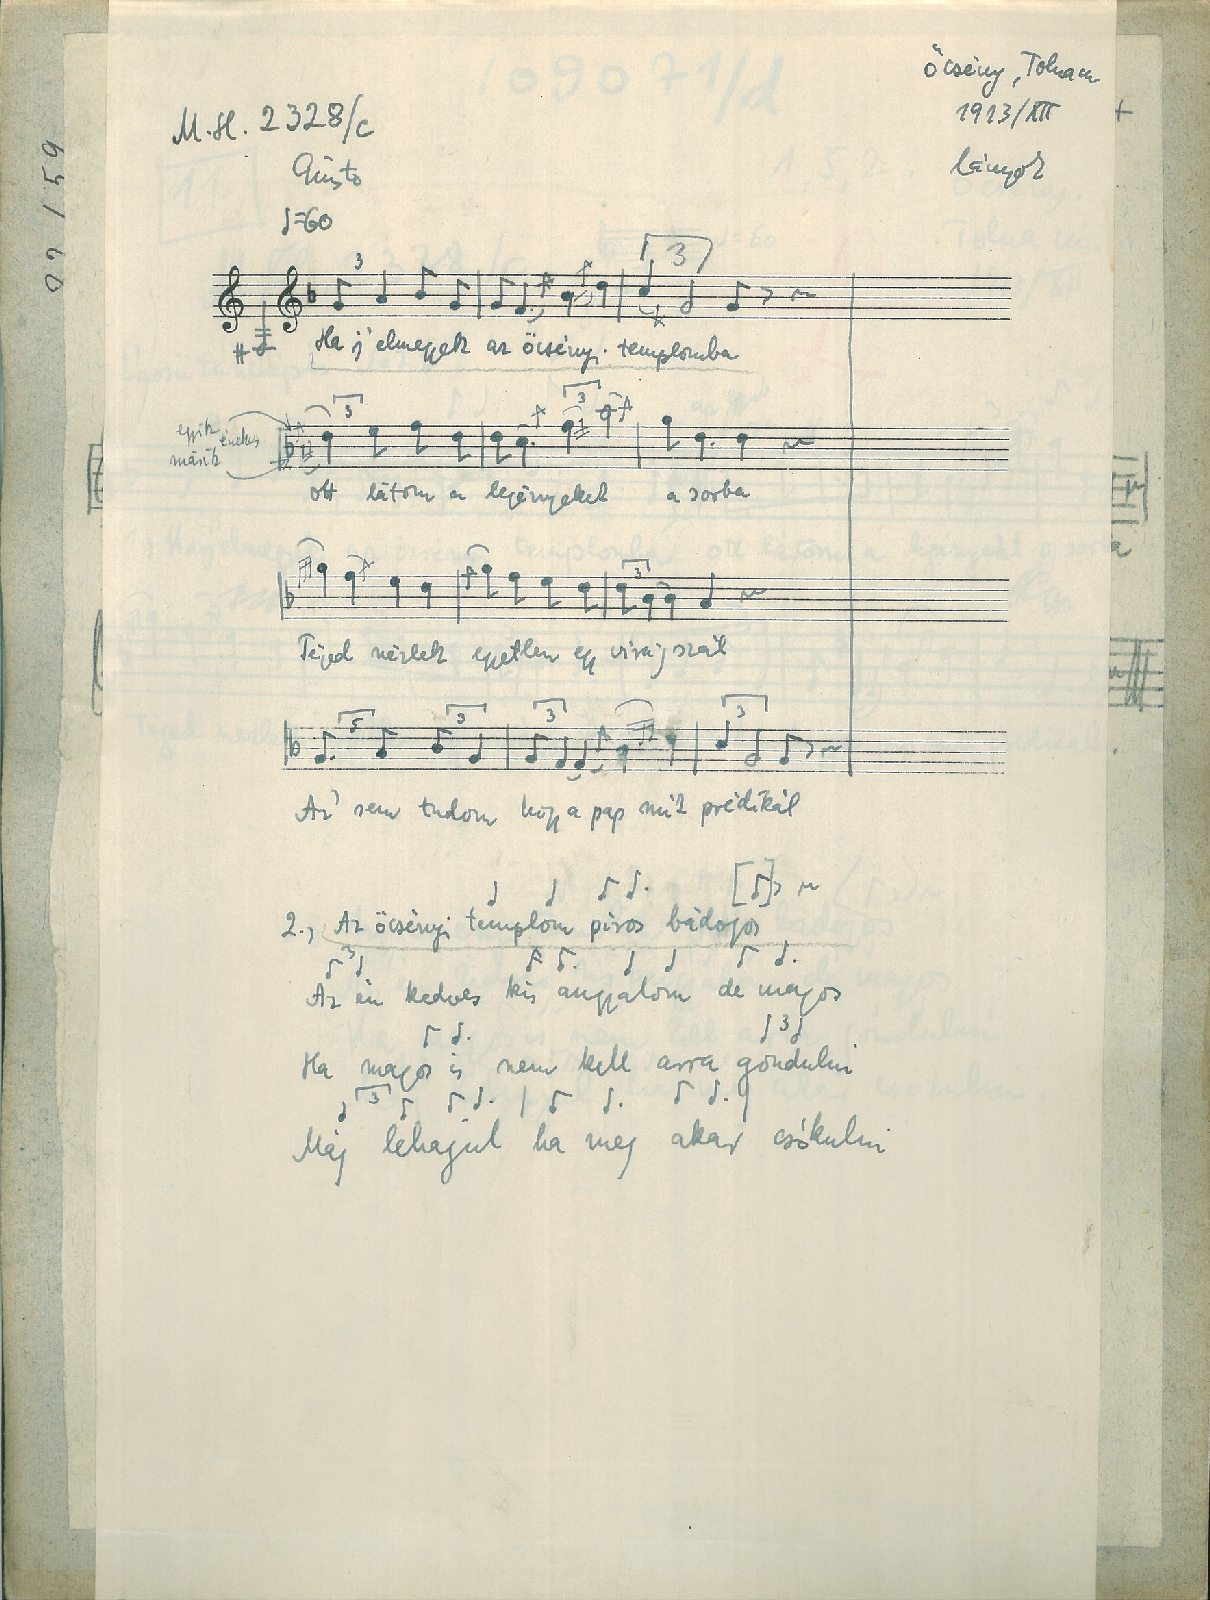 Őcsény, Tolna m.
1913/XII
lányok
M.H. 2328/c
Giusto
♩=60
07/59
3
3
Ha j' elmegyek az öcsényi templomba
egyik énekes
másik
3
3
ott látom a legényeket a sorba
3
Téged nézlek egyetlen egy virágszál
3
3
3
Az' sem tudom hogy a pap mit prédikál
2., Az öcsényi templom piros bádogos
3
Az én kedves kis angyalom de magos
3
Ha magos is nem kell arra gondulni
3
Máj lehajul ha meg akar csókulni